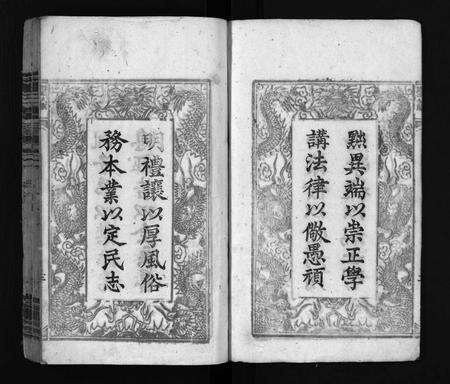 黜異端以崇正學
講法律以儆愚頑
明禮讓以厚風俗
務本業以定民志